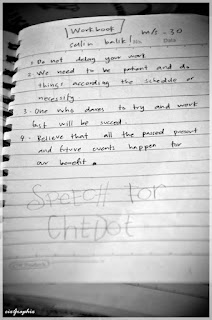 Workbook m/s - 30
salin balik! No. Date
1. Do not delay your work
2. We need to be patient and do
things according the schedule or
necessity
3. One who dares to try and work
fast will be succed
4. Believe that all the passed present
and future events happen for
our benefit.
Speech for
ChtDot
viaGraphia